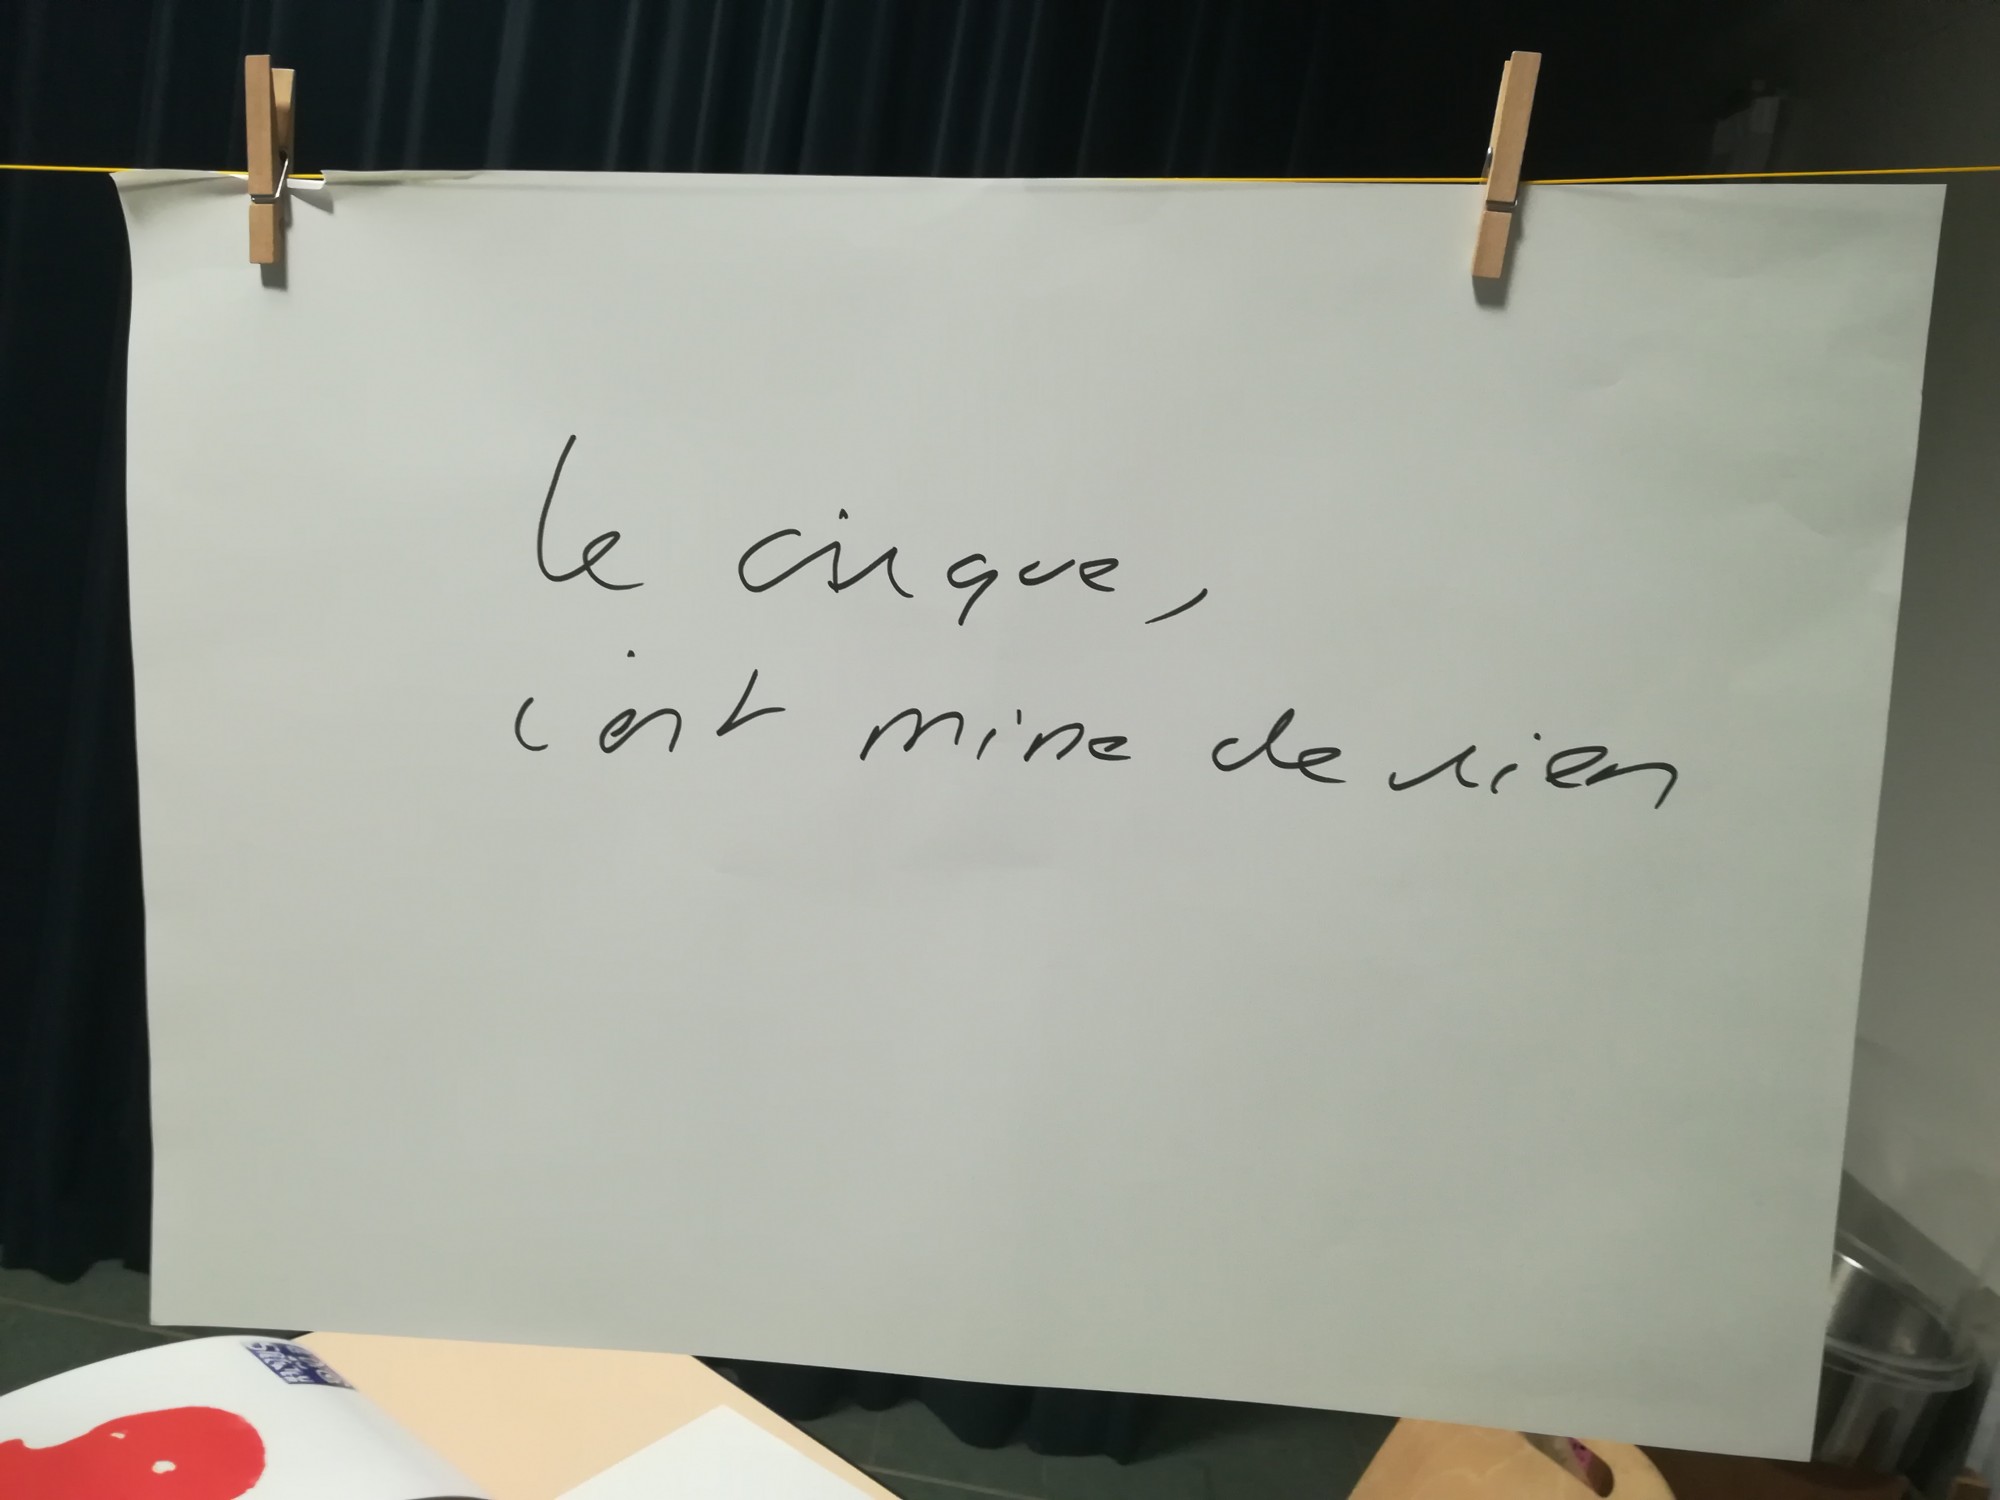 le cirque,
c'est mine de rien